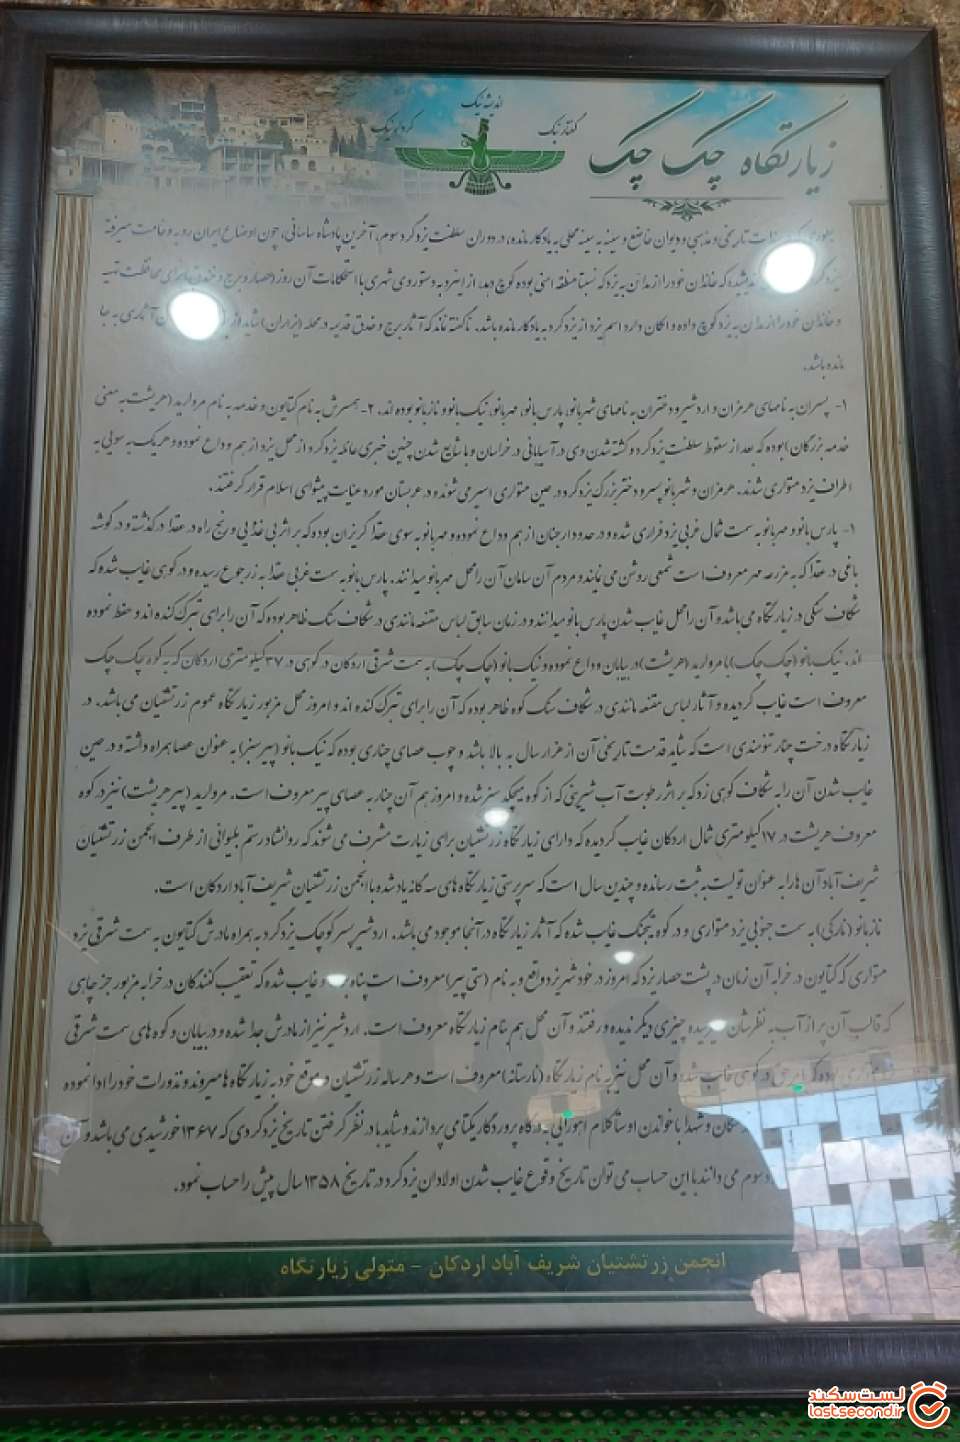 اندیشه نیک
گفتار نیک
کردار نیک
زیارتگاه چک چک
تاریخی و مذهبی و دیوان خاضع و سینه به سینه محلی به یادگار مانده، در دوران سلطنت یزدگرد سوم، آخرین پادشاه ساسانی، چون اوضاع ایران رو به وخامت میرفته
که خاندان خود را از مدائن به یزد که نسبتا منطقه امنی بوده کوچ دهد، از اینرو به دستور وی شهری با استحکامات آن روز (حصار و برج و خندق) برای محافظت تهیه
و خاندان خود را از مدائن به یزد کوچ داده و امکان دارد اسم یزد از یزدگرد به یادگار مانده باشد. ناگفته نماند که آثار برج و خندق قدیمه در محله آثاری به جا
مانده باشد.
۱- پسران به نامهای هرمزان و اردشیر و دختران به نامهای شهربانو، پارس بانو، مهربانو، نیک بانو و نازبانو بوده اند. ۲- همسرش به نام کتایون و خدمه به نام مروارید (هریشت به معنی
خدمه بزرگان) بوده که بعد از سقوط سلطنت یزدگرد و کشته شدن وی در آسیابانی در خراسان و با شایع شدن چنین خبری عائله یزدگرد از محل یزد از هم وداع نموده و هر یک به سویی به
اطراف یزد متواری شدند. هرمزان و شهربانو پسر و دختر بزرگ یزدگرد در حین متواری اسیر می شوند و در عربستان مورد عنایت پیشوای اسلام قرار گرفتند.
۱- پارس بانو و مهربانو به سمت شمال غربی یزد فراری شده و در حدود ارجنان از هم وداع نموده و مهربانو به سوی عقدا گریزان بوده که بر اثر بی غذایی و رنج راه در عقدا درگذشته و در گوشه
باغی در عقدا که به مزرعه مهر معروف است شمعی روشن می نمایند و مردم آن سامان آن را محل مهربانو میدانند. پارس بانو به سمت غربی عقدا به زرجوع رسیده و در کوهی غایب شده که
شکاف سنگی در زیارتگاه می باشد و آن را محل غایب شدن پارس بانو میدانند و در زمان سابق لباس مقنعه مانندی در شکاف سنگ ظاهر بوده که آن را برای تبرک کنده اند و حفظ نموده
اند. نیک بانو (چک چک) با مروارید (هریشت) در بیابان وداع نموده و نیک بانو (چک چک) به سمت شرقی اردکان در کوهی در ۳۷ کیلومتری اردکان که به کوه چک چک
معروف است غایب گردیده و آثار لباس مقنعه مانندی در شکاف سنگ کوه ظاهر بوده که آن را برای تبرک کنده اند و امروز محل مزبور زیارتگاه عموم زرتشتیان می باشد. در
زیارتگاه درخت چنار تنومندی است که شاید قدمت تاریخی آن از هزار سال به بالا باشد و چوب عصای چناری بوده که نیک بانو (پیر سبز) به عنوان عصا همراه داشته و در حین
غایب شدن آن را به شکاف کوهی زد که بر اثر رطوبت آب شیرینی که از کوه میچکد سبز شده و امروز هم آن چنار به عصای پیر معروف است. مروارید (پیر هریشت) نیز در کوه
معروف هریشت در ۱۷ کیلومتری شمال اردکان غایب گردیده که دارای زیارتگاه زرتشتیان برای زیارت مشرف می شوند که روانشاد رستم بلیوانی از طرف انجمن زرتشتیان
شریف آباد آن ها را به عنوان تولیت به ثبت رسانده و چندین سال است که سرپرستی زیارتگاه های سه گانه یاد شده با انجمن زرتشتیان شریف آباد اردکان است.
نازبانو (نارکی) به سمت جنوبی یزد متواری و در کوه تیجنگ غایب شده که آثار زیارتگاه در آنجا موجود می باشد. اردشیر پسر کوچک یزدگرد به همراه مادرش کتایون به سمت شرقی یزد
متواری که کتایون در خرابه آن زمان در پشت حصار یزد که امروز در خود شهر یزد واقع و به نام (ستی پیر) معروف است پناه برده و غایب شده که تعقیب کنندگان در خرابه مزبور جز چاهی
که قالب آن پر از آب به نظرشان رسیده چیزی دیگر ندیده و رفتند و آن محل هم بنام زیارتگاه معروف است. اردشیر نیز از مادرش جدا شده و در بیابان و کوه های سمت شرقی
متواری بوده که در کوهی غایب شده و آن محل نیز به نام زیارتگاه (نارستانه) معروف است و هر ساله زرتشتیان در موقع خود به زیارتگاه ها میروند و نذورات خود را ادا نموده
و شهدا با خواندن اوستا کلام اهورائی به درگاه پروردگار یکتا می پردازند و شاید با در نظر گرفتن تاریخ یزدگردی که ۱۳۶۷ خورشیدی می باشد و آن
سوم می دانند با این حساب می توان تاریخ وقوع غایب شدن اولادان یزدگرد در تاریخ ۱۳۵۸ سال پیش را حساب نمود.
انجمن زرتشتیان شریف آباد اردکان - متولی زیارتگاه
لست‌سکند
lastsecond.ir